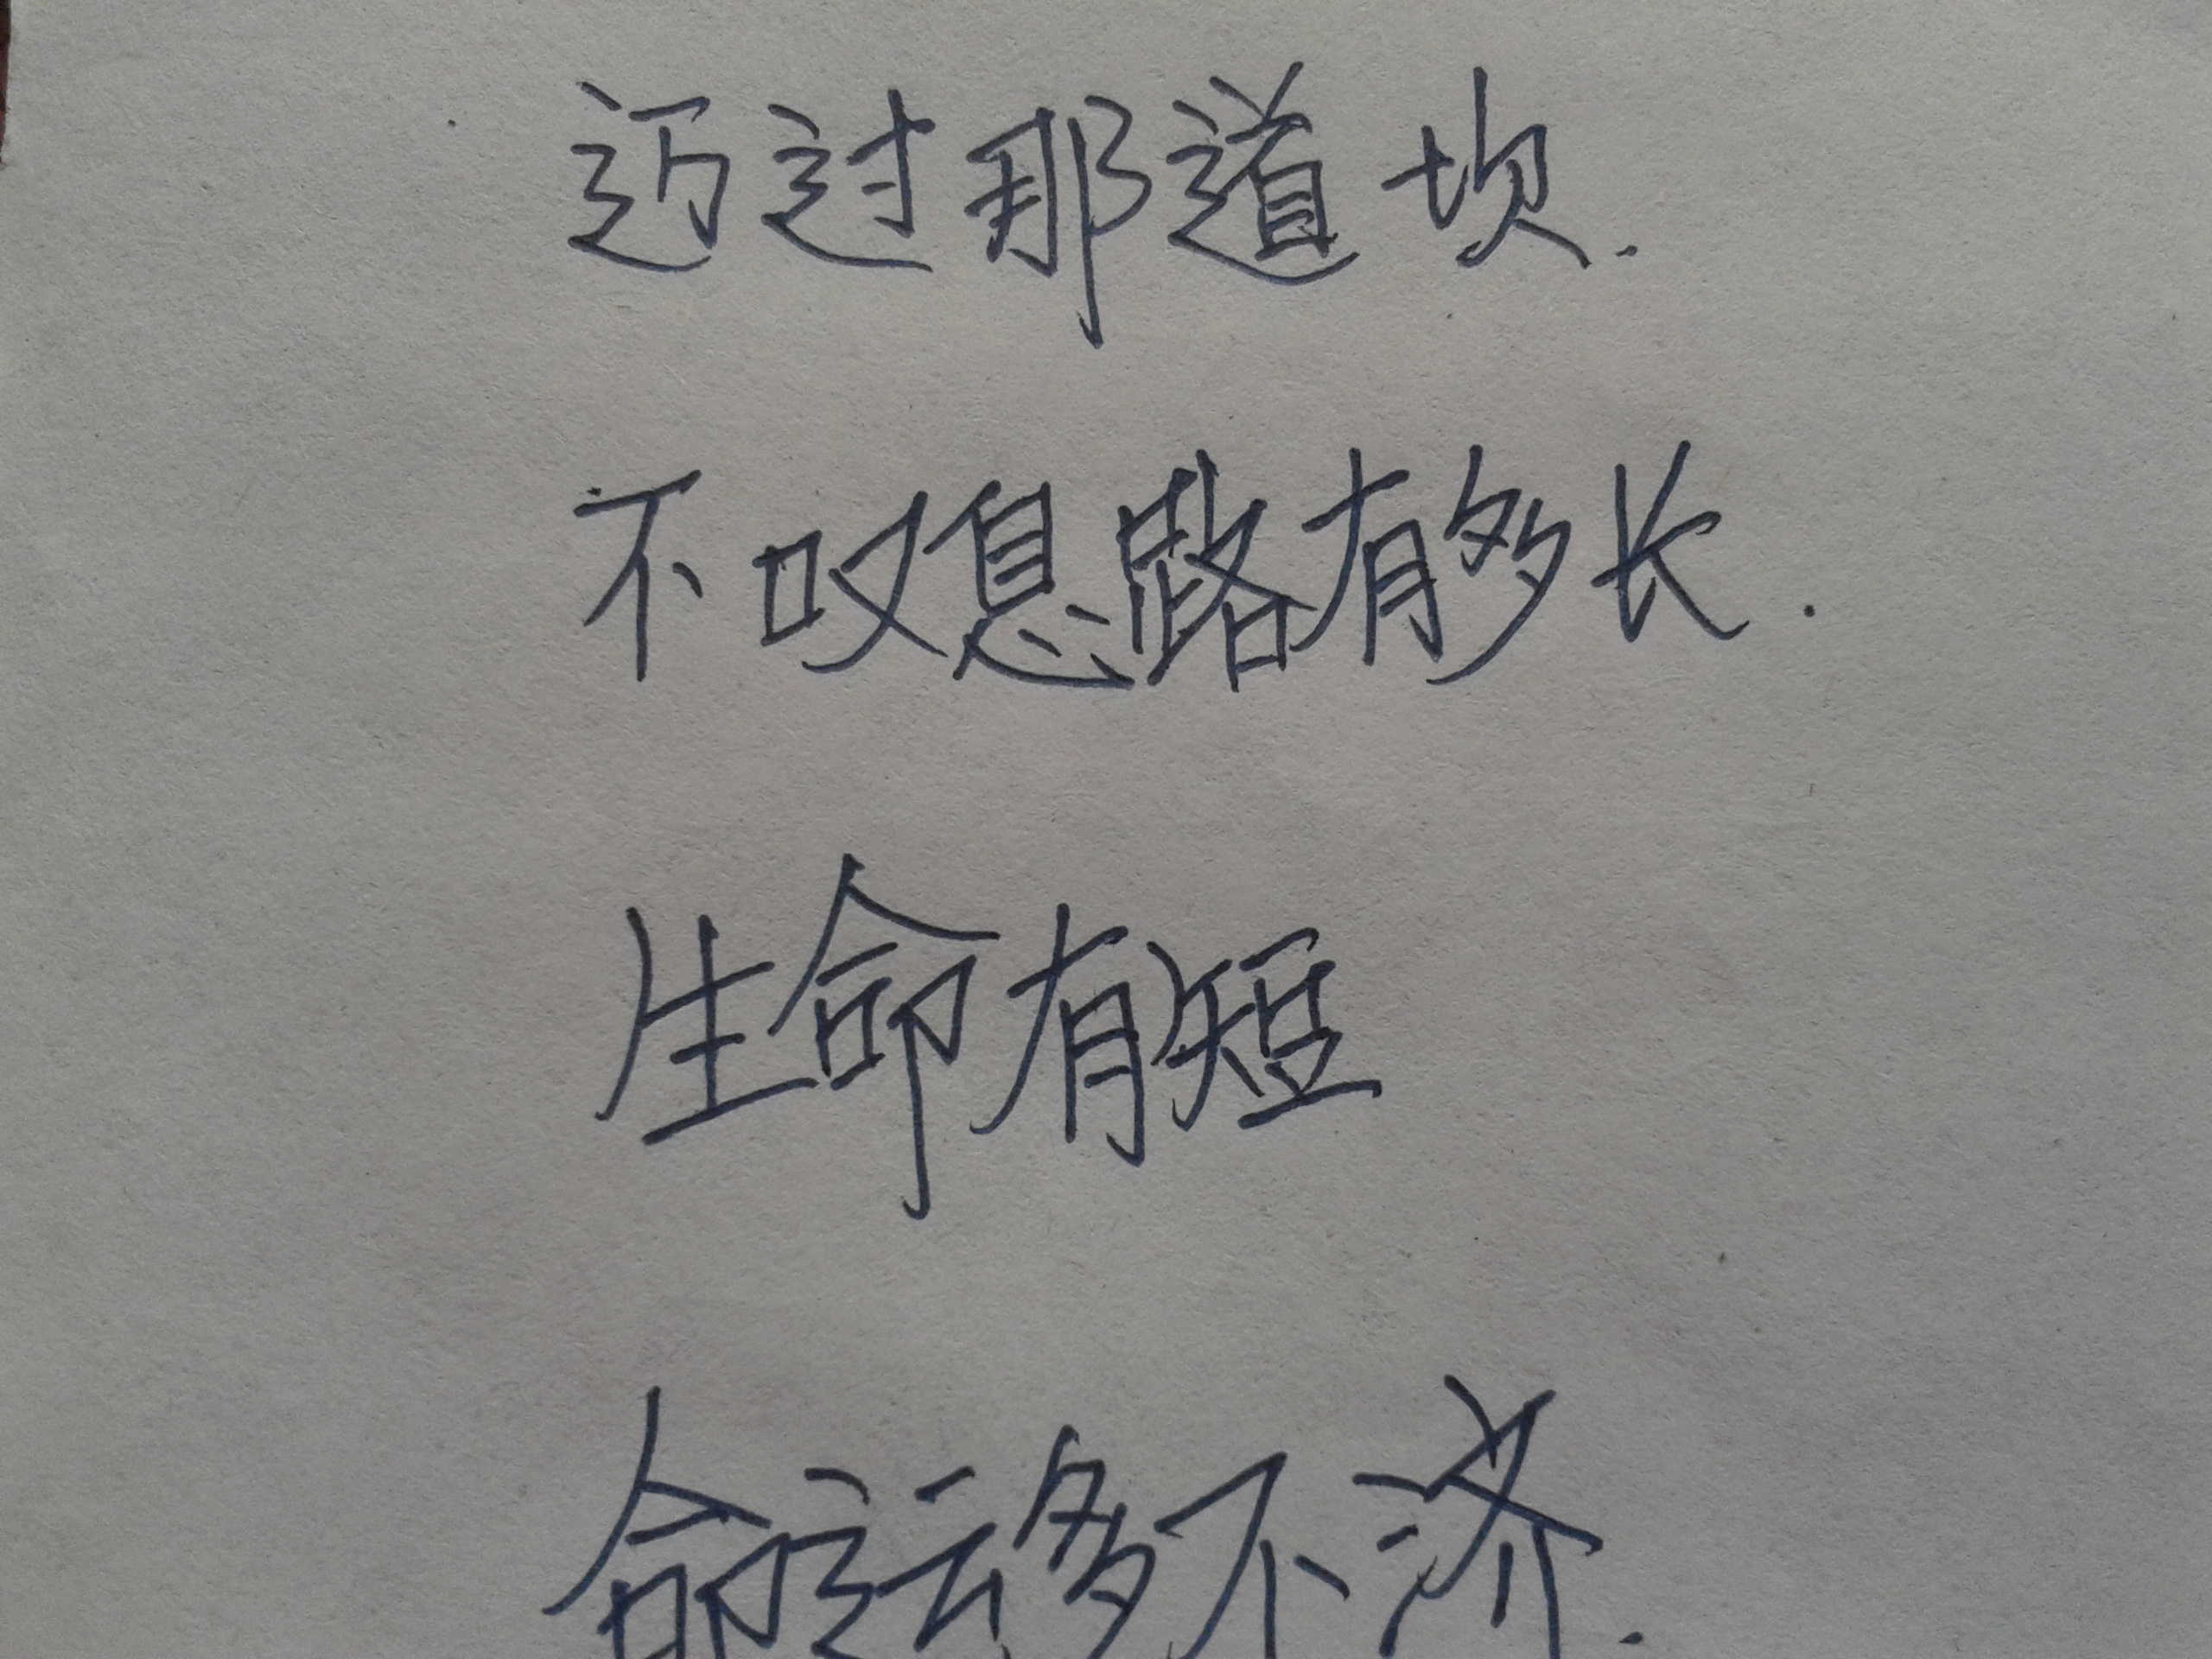 迈过那道坝.
不叹息路有多长.
生命有短
命运多不济.